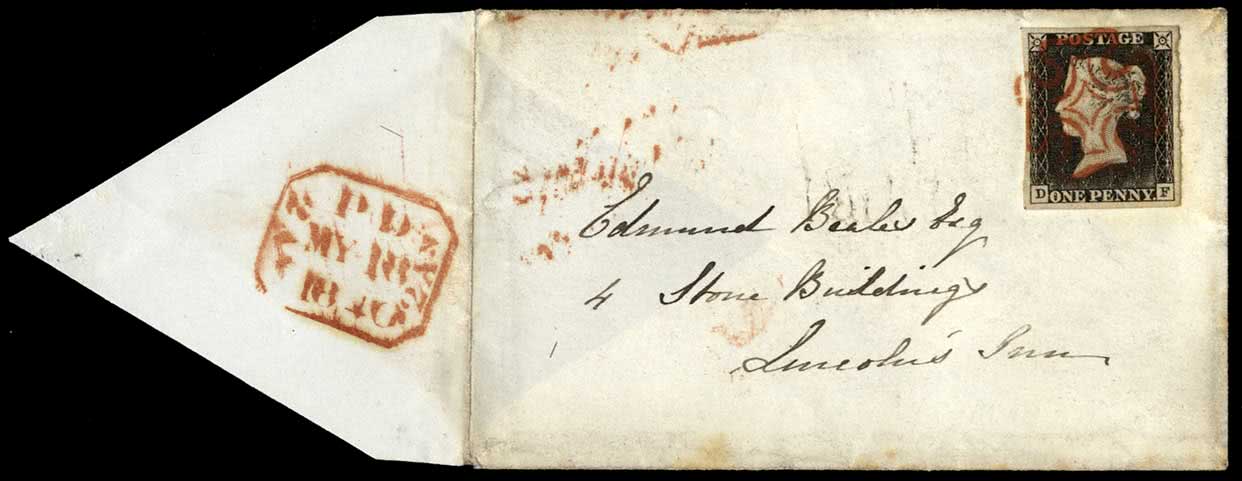 POSTAGE
D ONE PENNY F
Edmund Beales Esq
4 Stone Buildings
Lincoln's Inn
P.D
MY 18
1840